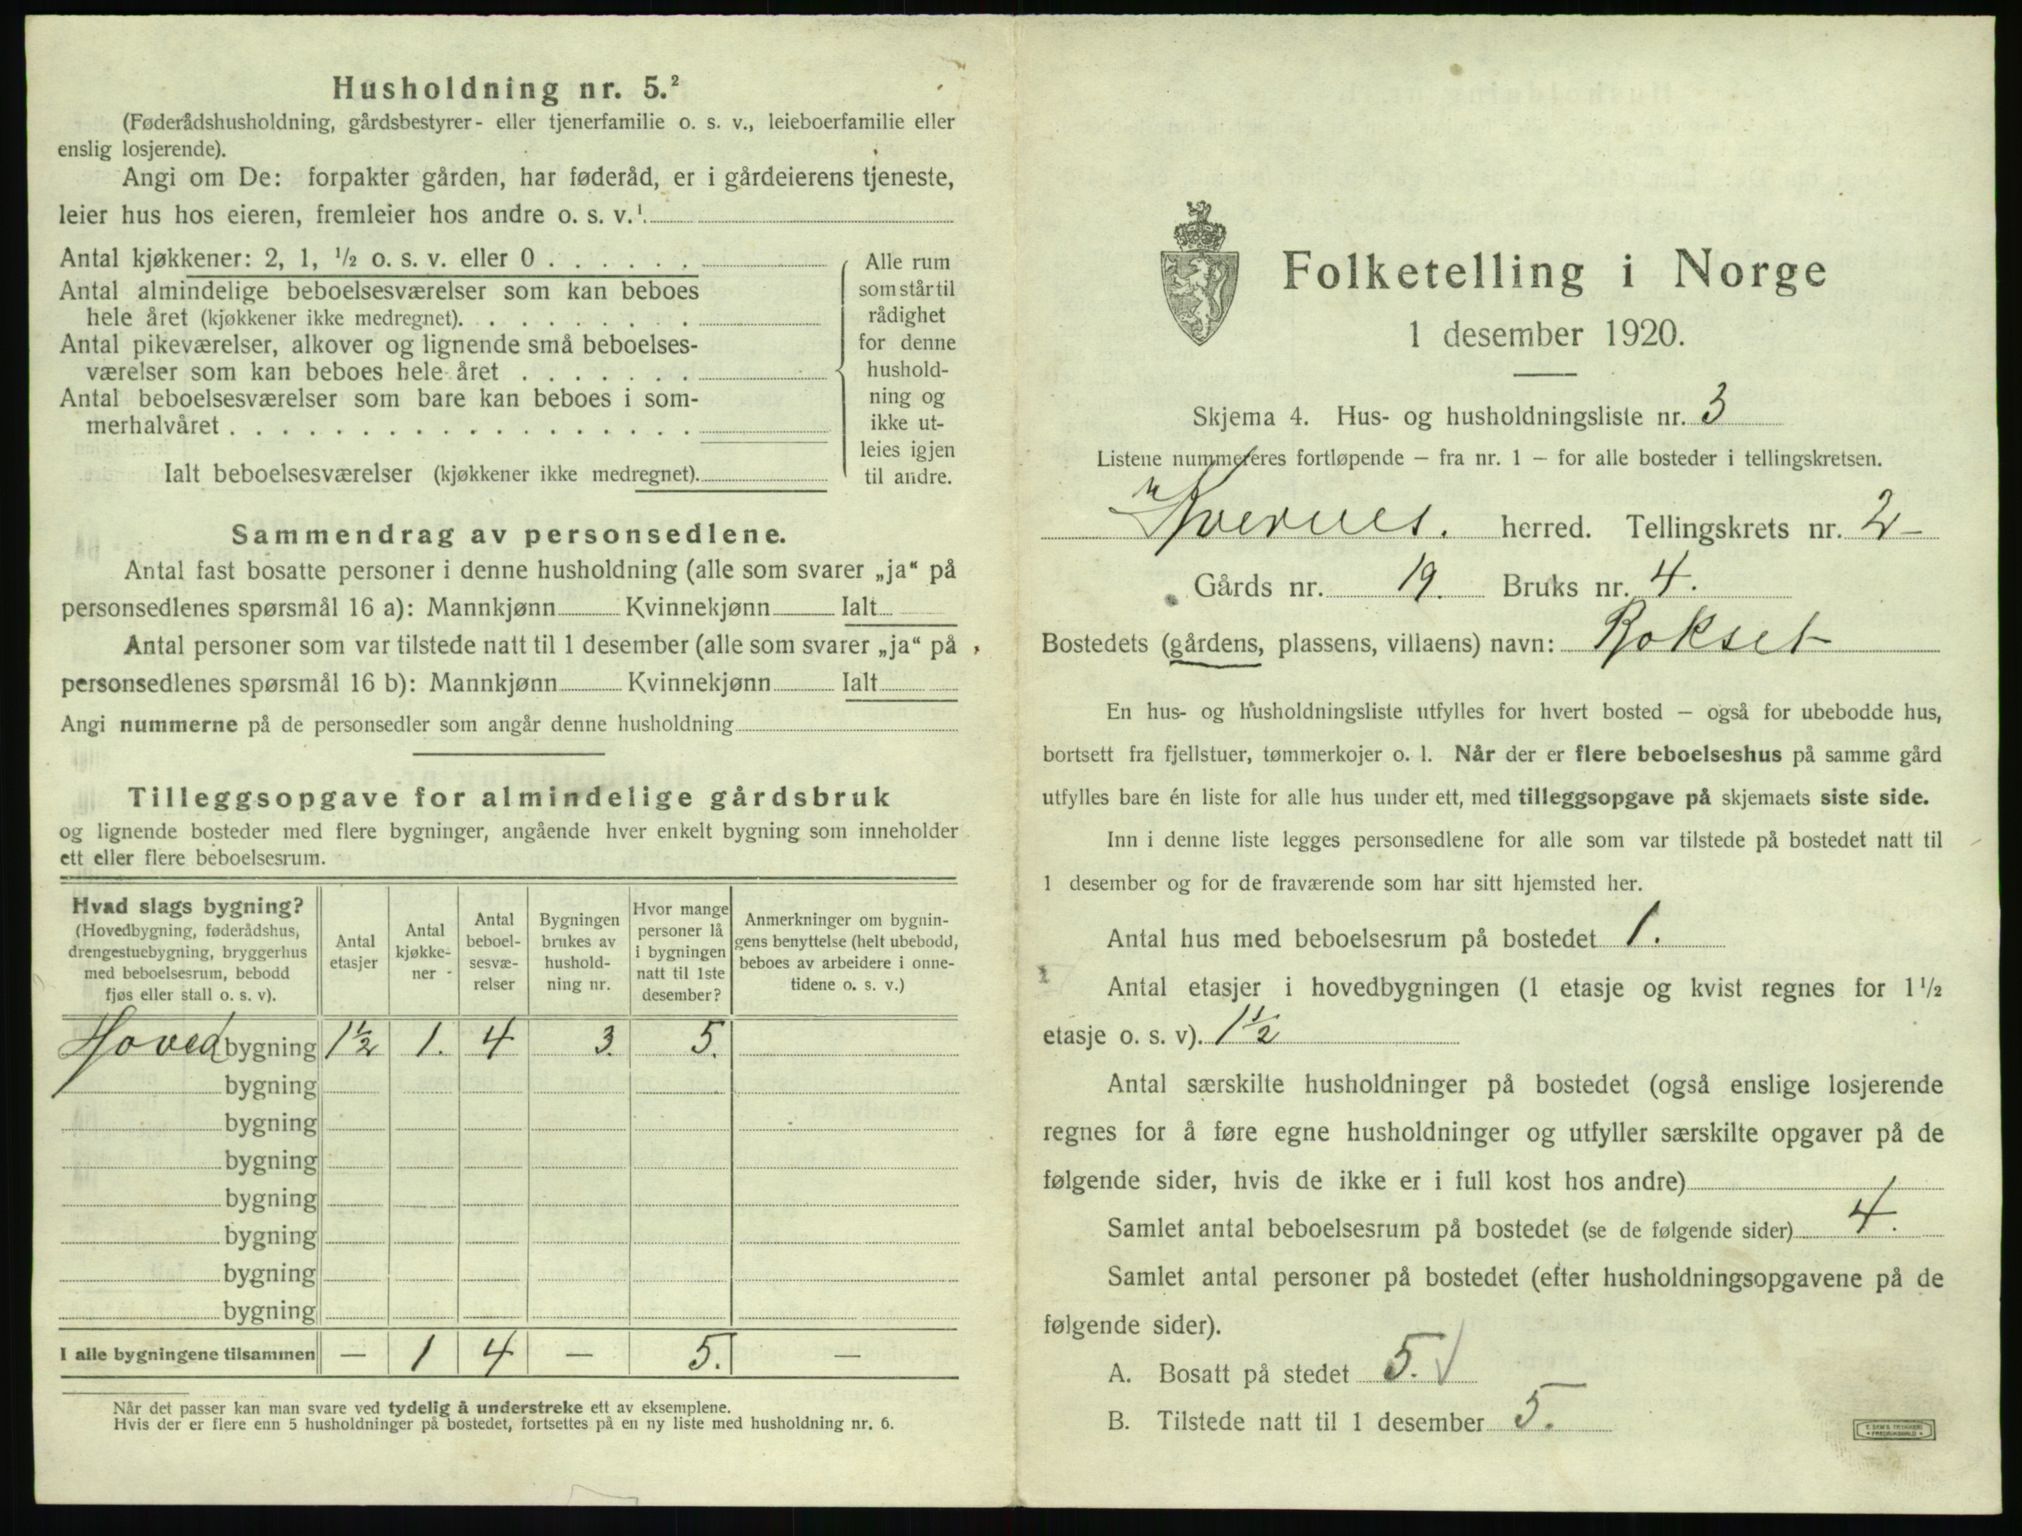 Husholdning nr. 5.²
(Føderådshusholdning, gårdsbestyrer- eller tjenerfamilie o. s. v., leieboerfamilie eller
enslig losjerende).
Angi om De: forpakter gården, har føderåd, er i gårdeierens tjeneste,
leier hus hos eieren, fremleier hos andre o. s. v.¹
Antal kjøkkener: 2, 1, ½ o. s. v. eller 0 . . . . . .
Antal almindelige beboelsesværelser som kan beboes
hele året (kjøkkener ikke medregnet). . . . . . . . .
Antal pikeværelser, alkover og lignende små beboelses-
værelser som kan beboes hele året . . . . . . .
Antal beboelsesværelser som bare kan beboes i som-
merhalvåret . . . . . . . . . . . . . . . . . .
Ialt beboelsesværelser (kjøkkener ikke medregnet).
Alle rum
som står til
rådighet
for denne
hushold-
ning og
ikke ut-
leies igjen
til andre.
Sammendrag av personsedlene.
Antal fast bosatte personer i denne husholdning (alle som svarer „ja“ på
personsedlenes spørsmål 16 a): Mannkjønn Kvinnekjønn Ialt
Antal personer som var tilstede natt til 1 desember (alle som svarer „ja“ på
personsedlenes spørsmål 16 b): Mannkjønn Kvinnekjønn Ialt
Angi nummerne på de personsedler som angår denne husholdning
Tilleggsopgave for almindelige gårdsbruk
og lignende bosteder med flere bygninger, angående hver enkelt bygning som inneholder
ett eller flere beboelsesrum.
Hvad slags bygning?
(Hovedbygning, føderådshus,
drengestuebygning, bryggerhus
med beboelsesrum, bebodd
fjøs eller stall o. s. v).
Antal
etasjer
Antal
kjøkke-
ner
Antal
beboel-
sesvæ-
relser
Bygningen
brukes av
hushold-
ning nr.
Hvor mange
personer lå
i bygningen
natt til 1ste
desember?
Anmerkninger om bygnin-
gens benyttelse (helt ubebodd,
beboes av arbeidere i onne-
tidene o. s. v.)
Hoved bygning 1½ 1. 4 3. 5.
bygning
bygning
bygning
bygning
bygning
bygning
bygning
I alle bygningene tilsammen — 1 4 — 5. —
Når det passer kan man svare ved tydelig å understreke ett av eksemplene.
Hvis der er flere enn 5 husholdninger på bostedet, fortsettes på en ny liste med husholdning nr. 6.
Folketelling i Norge
1 desember 1920.
Skjema 4. Hus- og husholdningsliste nr. 3
Listene nummereres fortløpende — fra nr. 1 — for alle bosteder i tellingskretsen.
Kvernes. herred. Tellingskrets nr. 2
Gårds nr. 19. Bruks nr. 4.
Bostedets (gårdens, plassens, villaens) navn: Rokset
En hus- og husholdningsliste utfylles for hvert bosted — også for ubebodde hus,
bortsett fra fjellstuer, tømmerkojer o. l. Når der er flere beboelseshus på samme gård
utfylles bare én liste for alle hus under ett, med tilleggsopgave på skjemaets siste side.
Inn i denne liste legges personsedlene for alle som var tilstede på bostedet natt til
1 desember og for de fraværende som har sitt hjemsted her.
Antal hus med beboelsesrum på bostedet 1.
Antal etasjer i hovedbygningen (1 etasje og kvist regnes for 1½
etasje o. s. v). 1½
Antal særskilte husholdninger på bostedet (også enslige losjerende
regnes for å føre egne husholdninger og utfyller særskilte opgaver på de
følgende sider, hvis de ikke er i full kost hos andre)
Samlet antal beboelsesrum på bostedet (se de følgende sider) 4.
Samlet antal personer på bostedet (efter husholdningsopgavene på de
følgende sider).
A. Bosatt på stedet 5.
B. Tilstede natt til 1 desember 5.